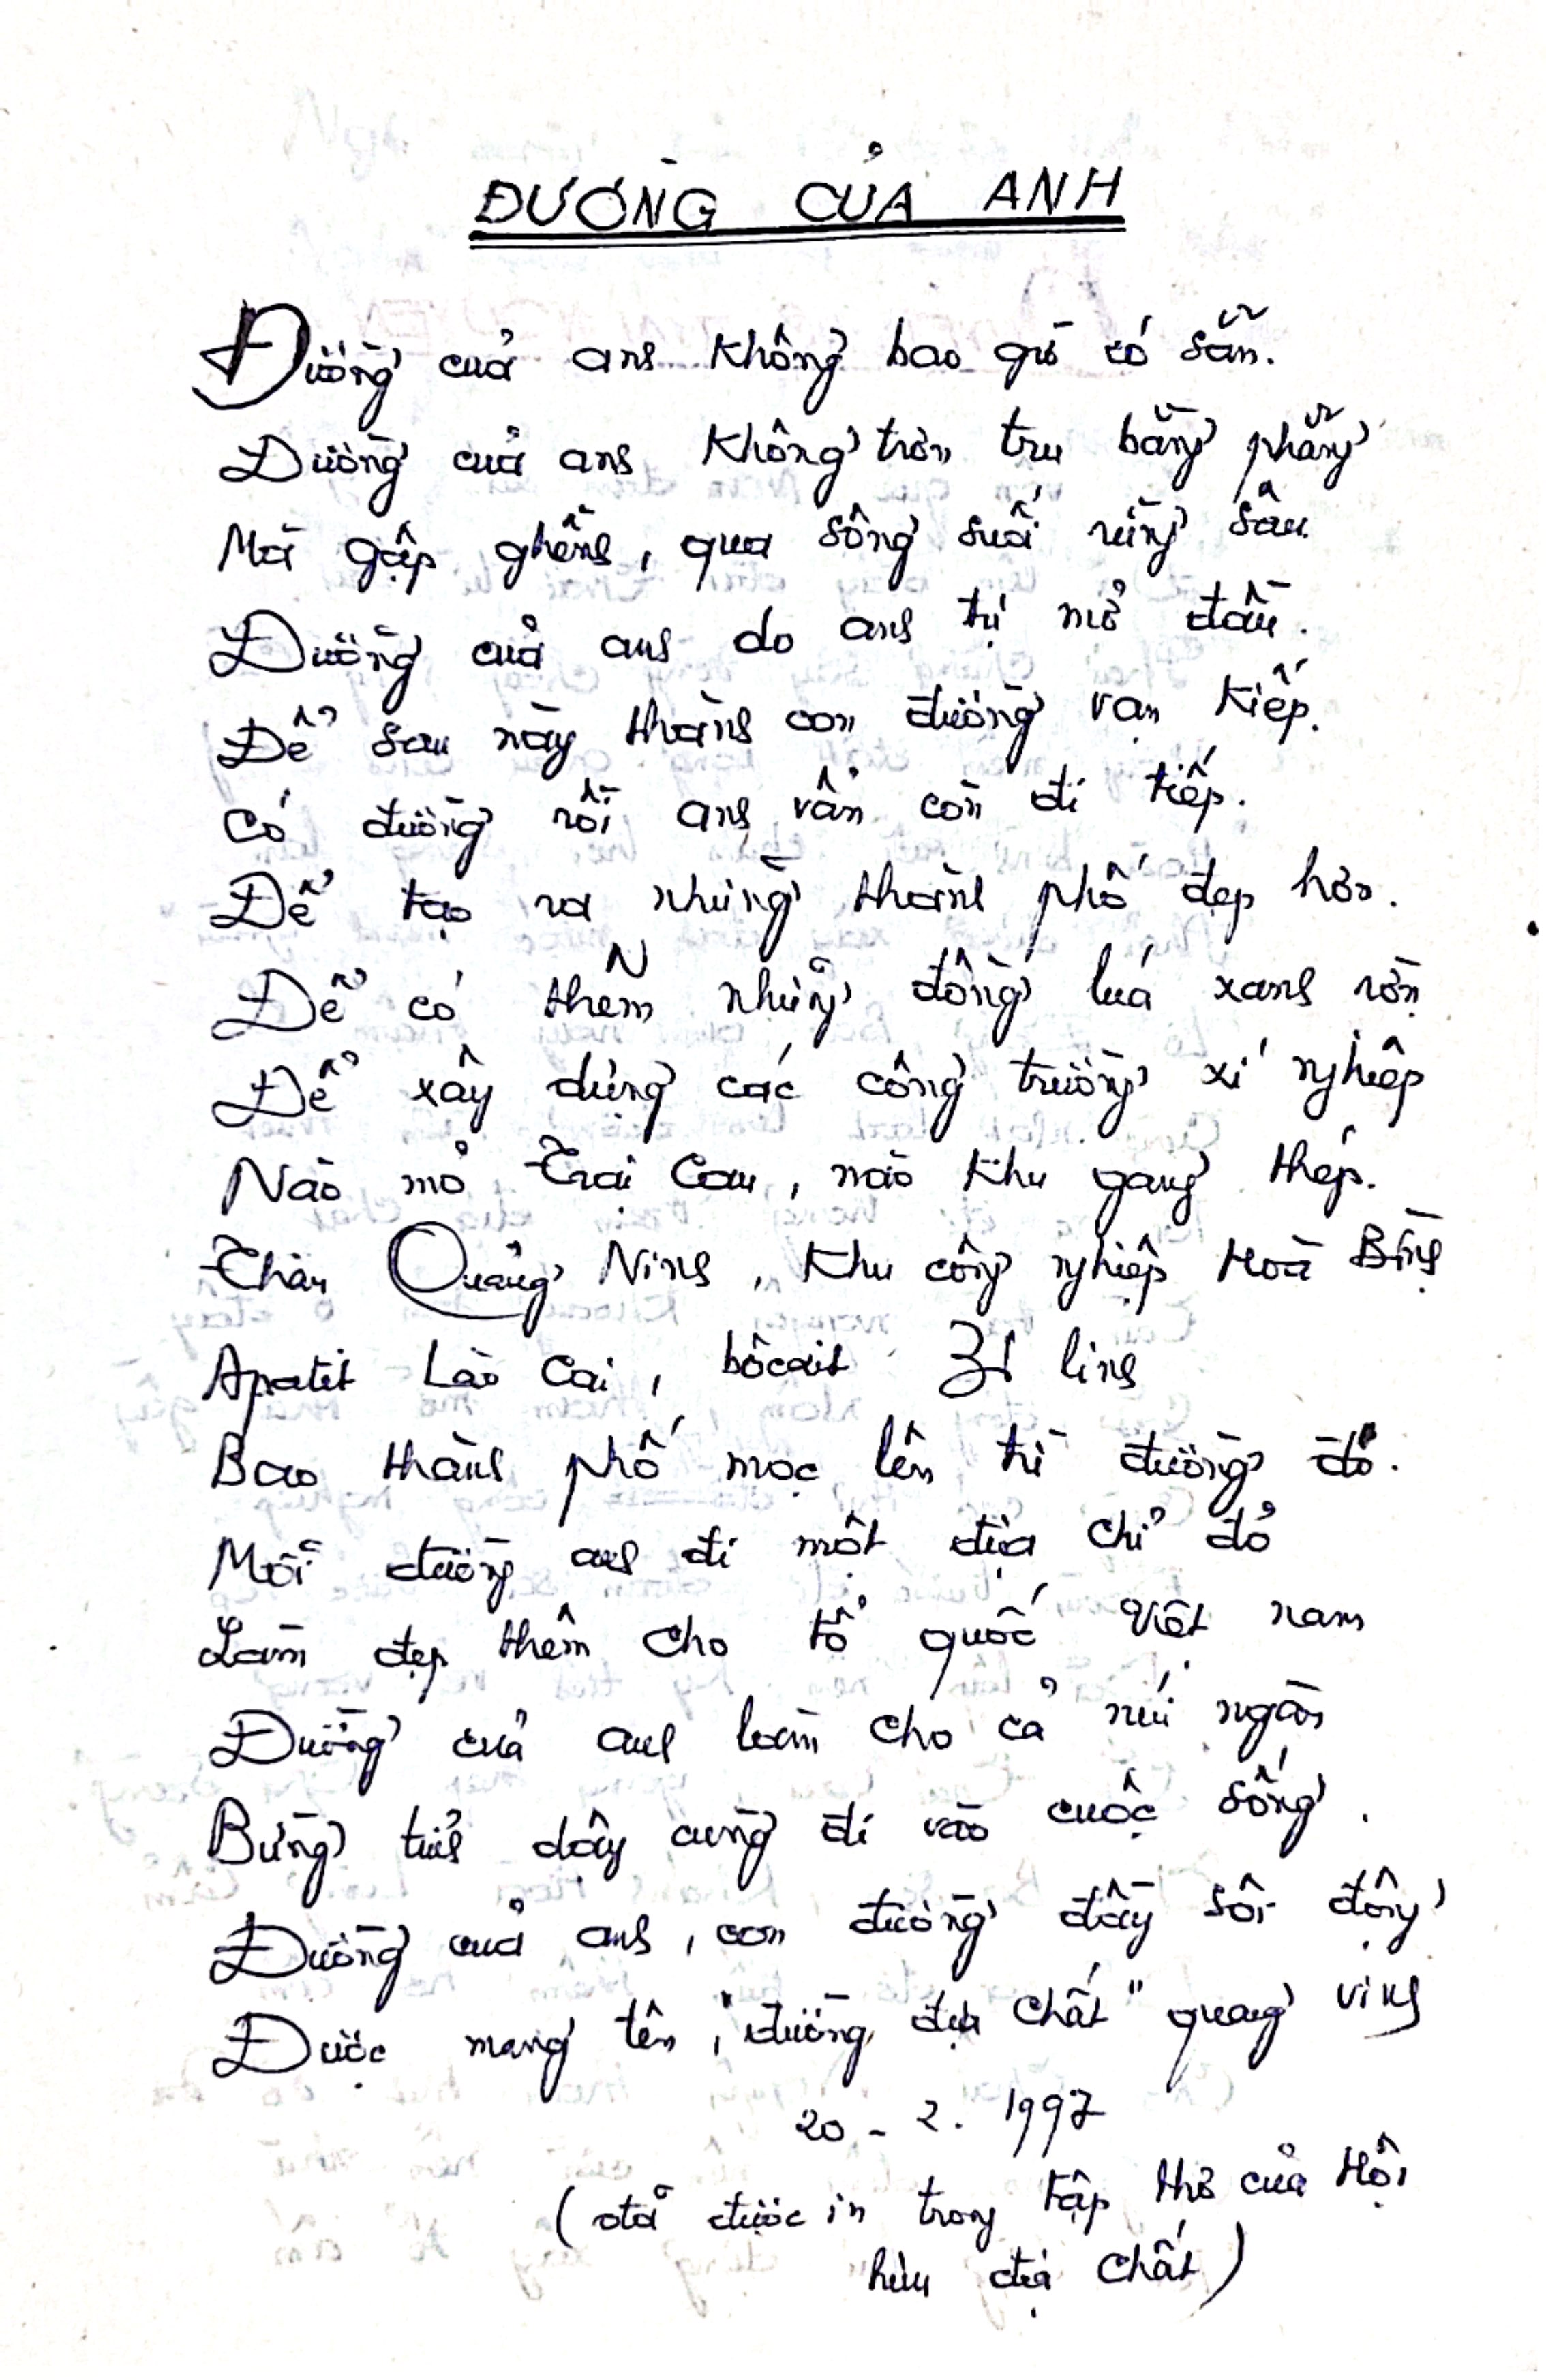 ĐƯỜNG CỦA ANH
Đường của anh không bao giờ có sẵn.
Đường của anh không trơn tru bằng phẳng
Mà gập ghềnh, qua sông suối rừng sâu
Đường của anh do anh tự mở đầu.
Để sau này thành con đường vạn kiếp.
Có đường rồi anh vẫn còn đi tiếp.
Để tạo ra những thành phố đẹp hơn.
Để có thêm những đồng lúa xanh rờn
Để xây dựng các công trường xí nghiệp
Nào mỏ Trại Cau, nào khu gang thép.
Than Quảng Ninh, khu công nghiệp Hoà Bình
Apatit Lào Cai, bôcait Bố linh
Bao thành phố mọc lên từ đường đó.
Mỗi đường anh đi một địa chỉ đỏ
Làm đẹp thêm cho tổ quốc Việt nam
Đường của anh làm cho cả núi ngàn
Bừng tỉnh dậy cùng đi vào cuộc sống.
Đường của anh, con đường đầy sôi động
Được mang tên, "đường địa chất" quang vinh
20 - 2. 1997
(đã được in trong tập thơ của Hội
hữu địa chất)